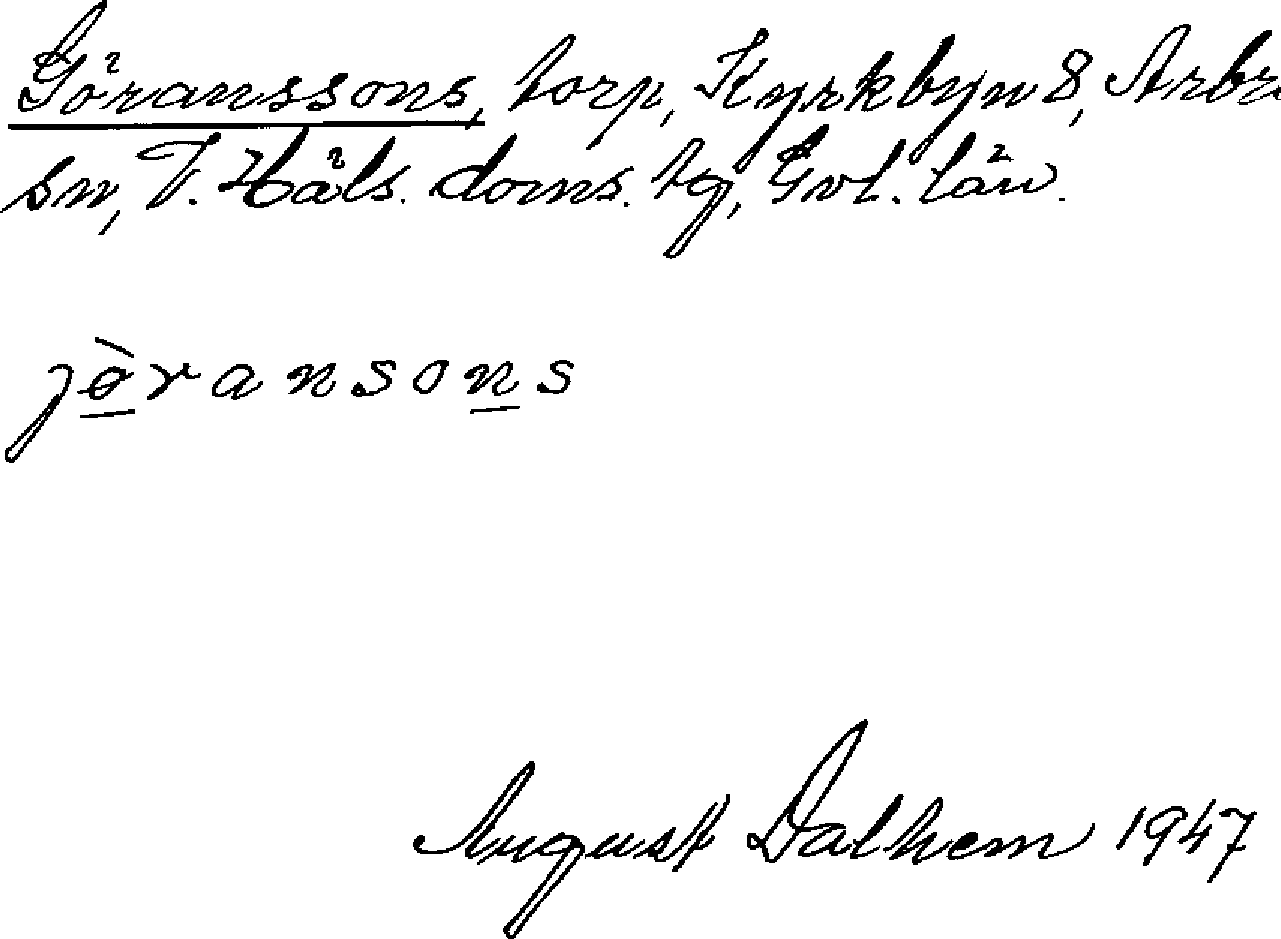 Göranssons, torp, Kyrkbyn 8, Arbrå
sn, V. Häls. doms. tg, Gvl. län.
jö̀ransons
August Dalhem 1947